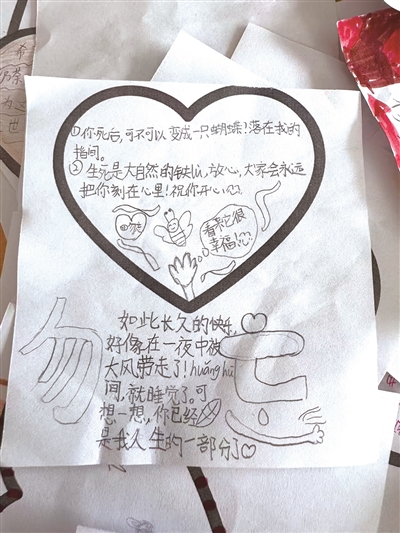 ①你死后,可不可以变成一只蝴蝶!落在我的
指间。
②生死是大自然的铁则,放心,大家会永远
把你刻在心里!祝你开心
吻
看来它很
幸福!
如此长久的快乐,
好像在一夜中被
大风带走了!huǎng hū
间,就睡觉了。可
想一想,你已经
是我人生的一部分了
勿忘
世